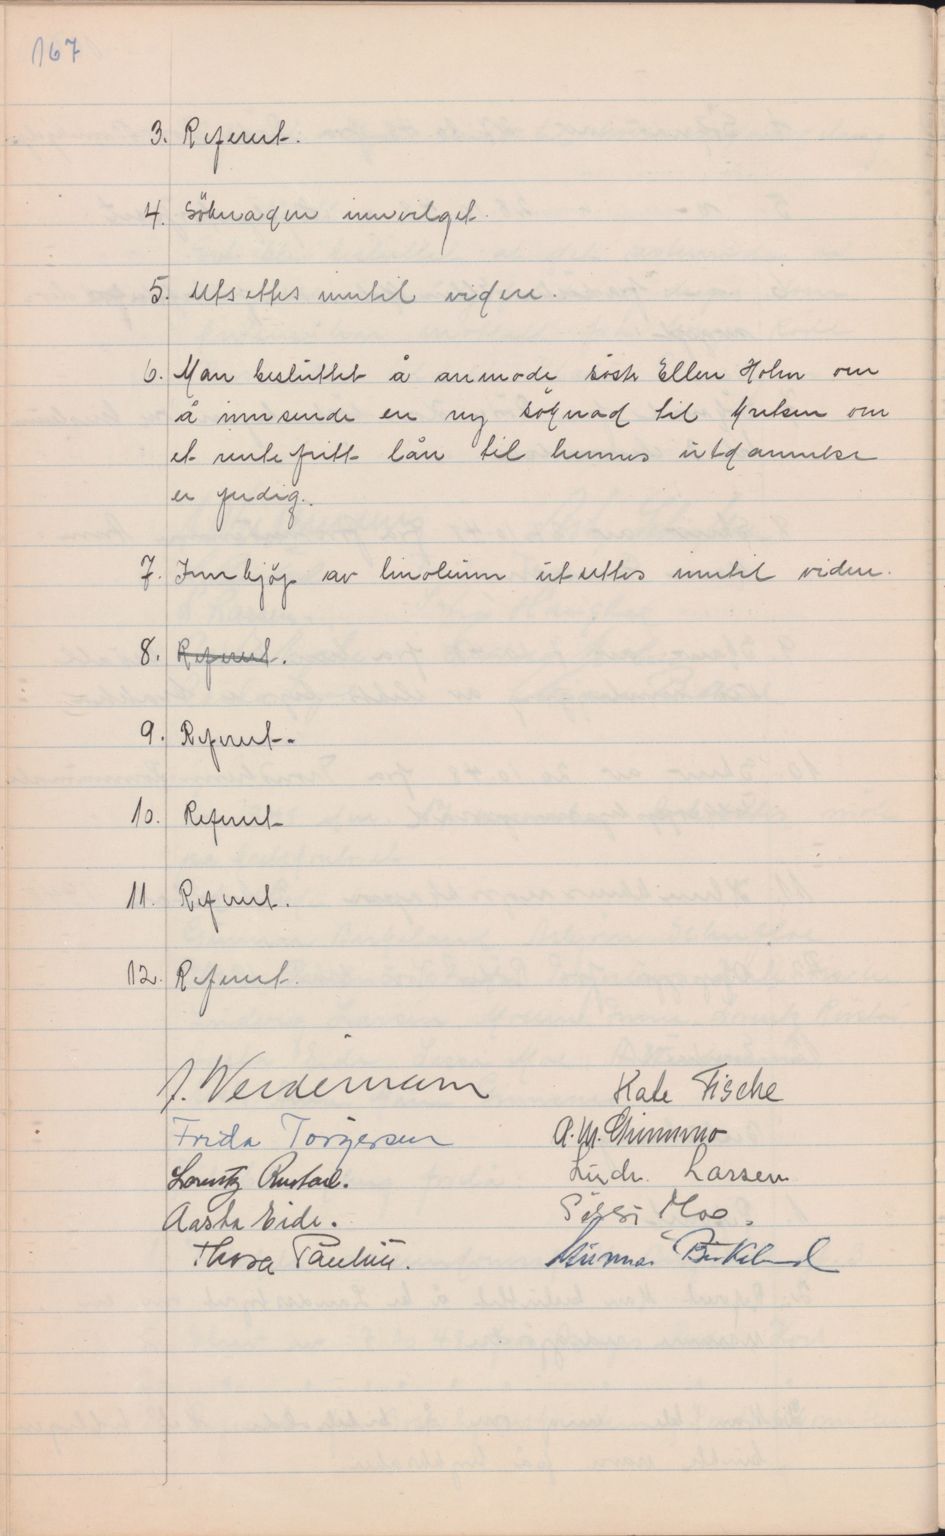 167
3. Referert.
4. Söknaden innvilget.
5. Utsettes inntil videre.
6. Man besluttet å anmode söster Ellen Holm om
å innsende en ny söknad til om
et rentefritt lån til hennes utdannelse
er ferdig.
7. Innkjöp av linoleum utsettes inntil videre.
8. Referert.
9. Referert.
10. Referert
11. Referert.
12. Referert.
J. Weidemann Kate Fische
Frida Torgersen A. M.
Lorentz Rustad. Larsen
Aasta Eide. Moe.
Thora Paulsen. Gunnar Birkeland